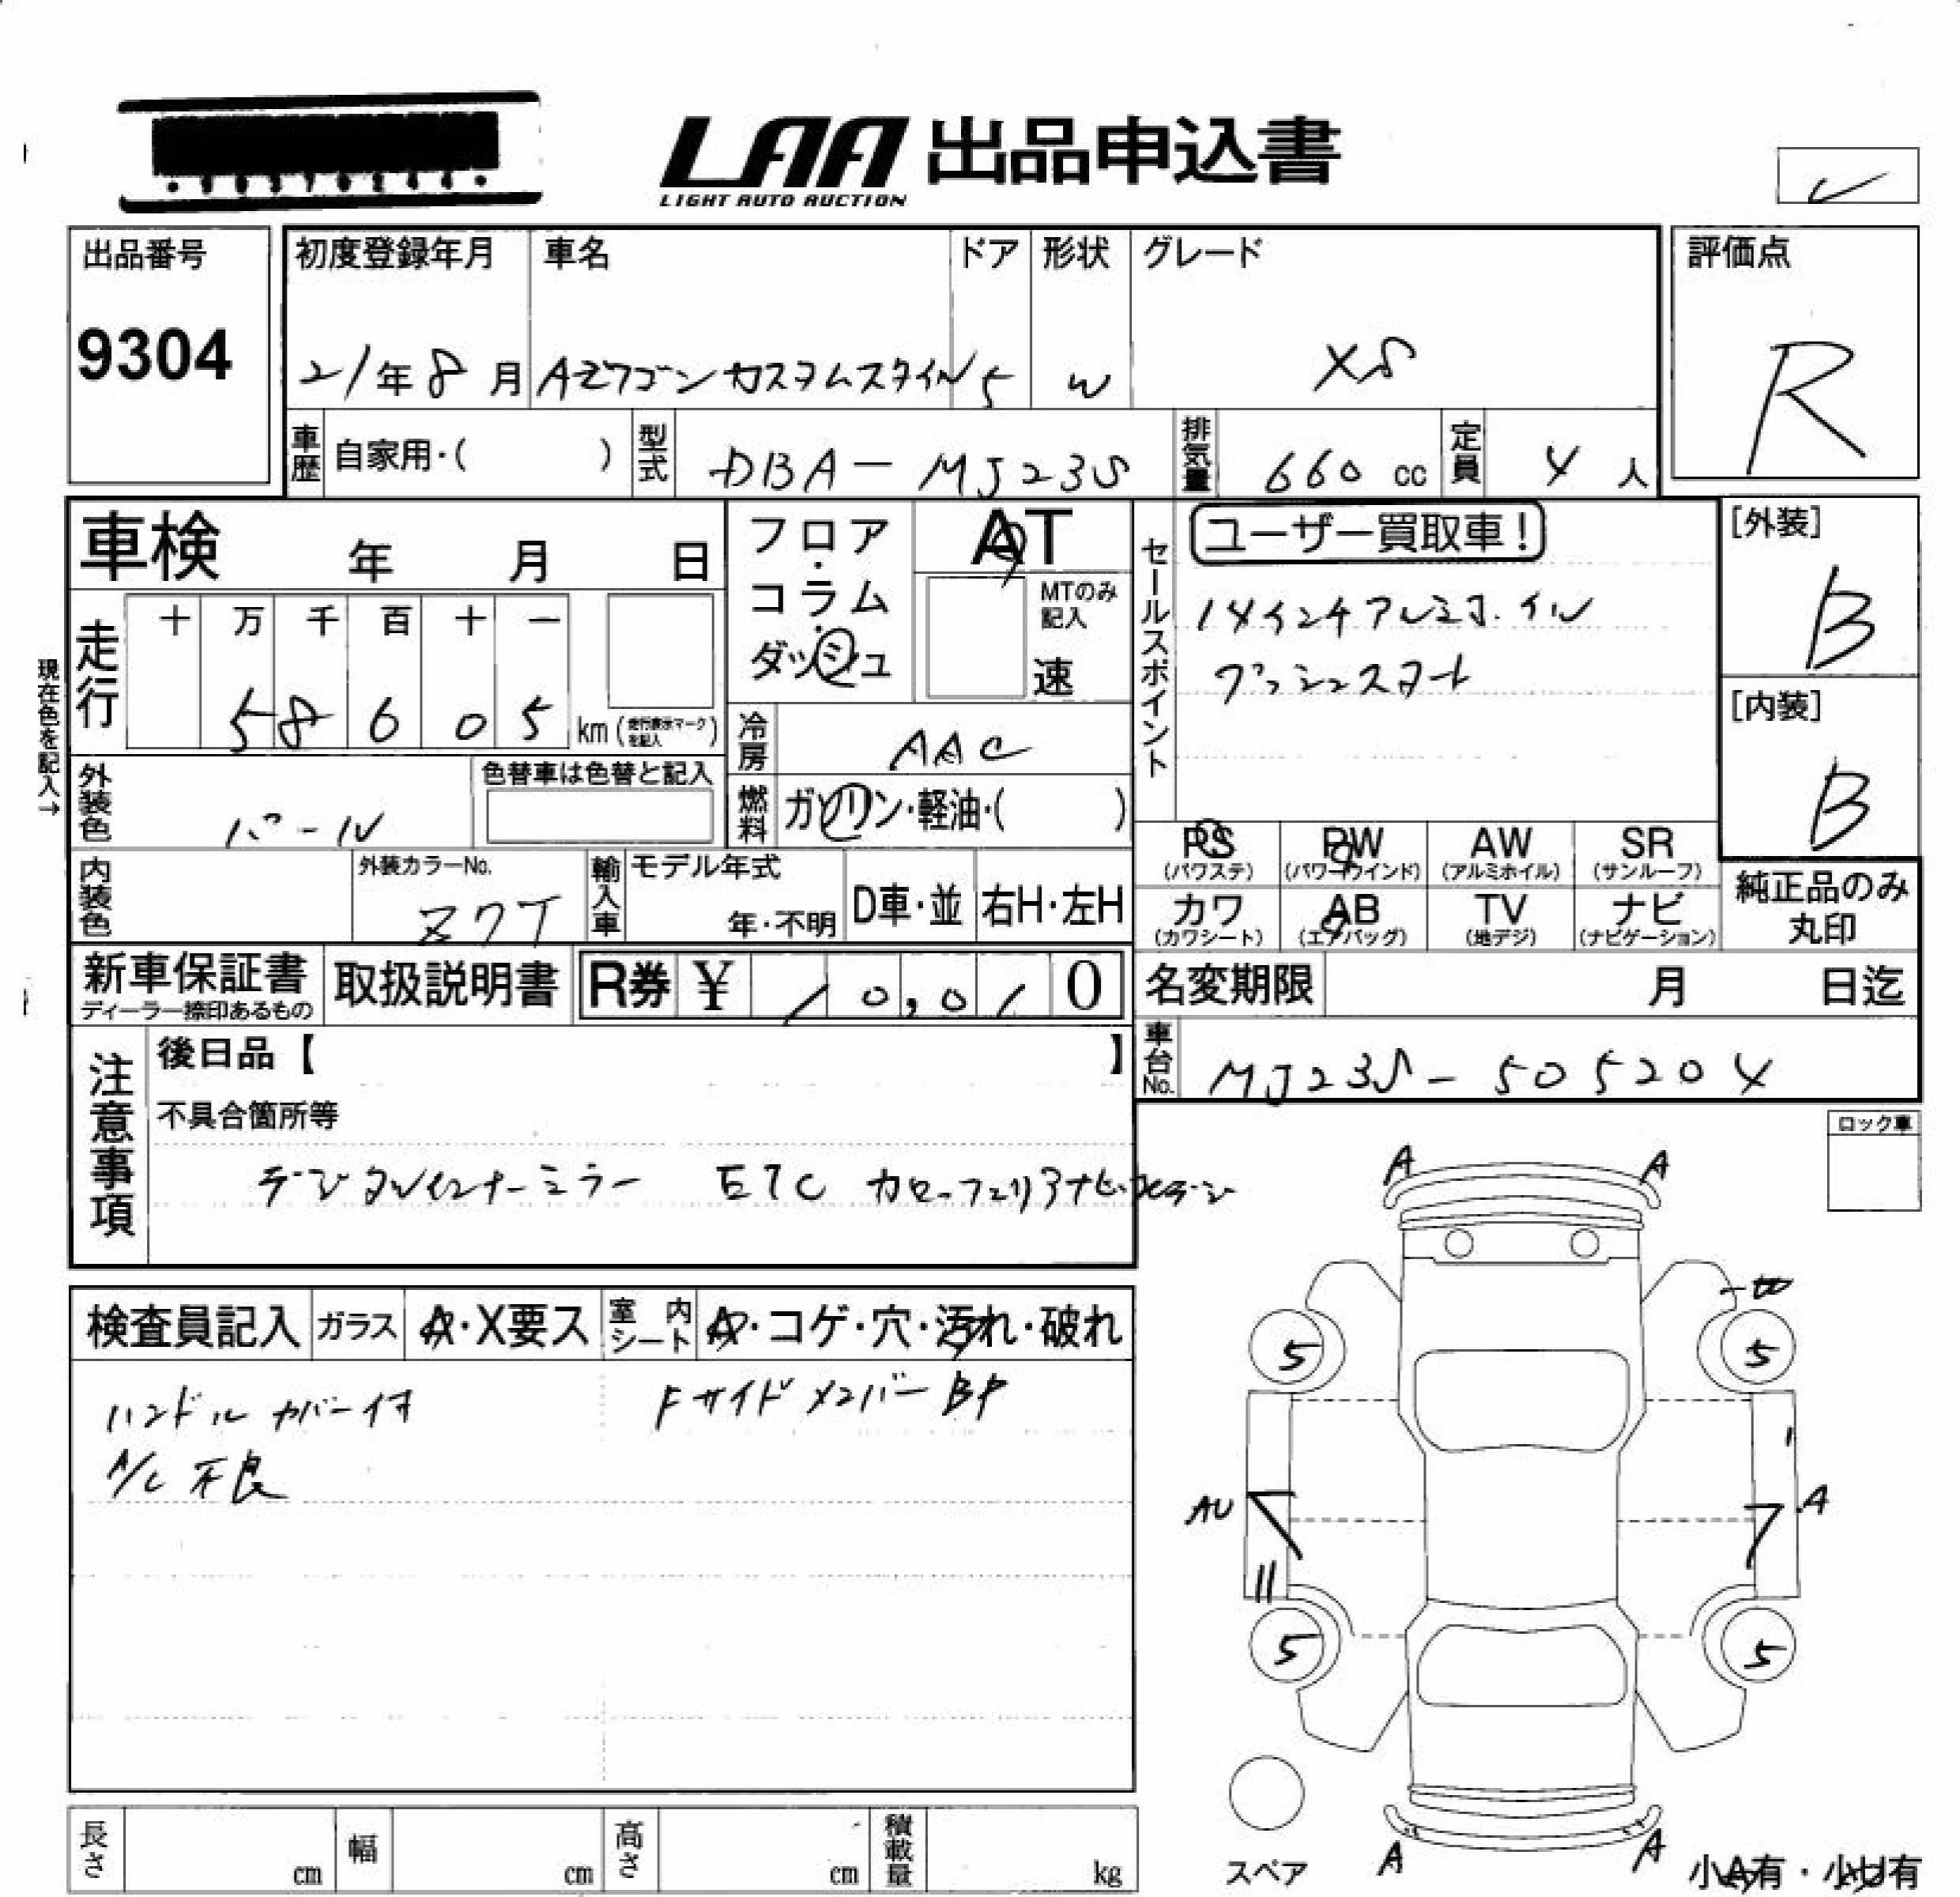 LAA 出品申込書
LIGHT AUTO AUCTION
出品番号
9304
初度登録年月
21年8月
車名
AZワゴンカスタムスタイル
ドア
5
形状
W
グレード
XS
評価点
R
車歴
自家用・( )
型式
DBA-MJ23S
排気量
660 cc
定員
4 人
車検 年 月 日
フロア・コラム・ダッシュ
AT
MTのみ記入
速
セールスポイント
ユーザー買取車!
14インチアルミホイル
プッシュスタート
[外装]
B
[内装]
B
現在色を記入→
走行
十 万 千 百 十 一
5 8 6 0 5 km (走行表示マークを記入)
冷房
AAC
外装色
パール
色替車は色替と記入
燃料
ガソリン・軽油・( )
PS (パワステ)
PW (パワーウインド)
AW (アルミホイル)
SR (サンルーフ)
カワ (カワシート)
AB (エアバッグ)
TV (地デジ)
ナビ (ナビゲーション)
純正品のみ丸印
内装色
外装カラーNo.
Z7T
輸入車
モデル年式
年・不明
D車・並
右H・左H
新車保証書
ディーラー捺印あるもの
取扱説明書
R券 ¥ 10,010
名変期限 月 日迄
車台No.
MJ23S-505204
注意事項
後日品【 】
不具合箇所等
デジタルインナーミラー ETC カロッツェリアナビ
ロック車
A A
5 5
AU A
5 5
A A
検査員記入
ガラス
A・X要ス
室内シート
A・コゲ・穴・汚れ・破れ
ハンドルカバー付
Fサイドメンバー BP
A/C不良
長さ cm
幅 cm
高さ cm
積載量 kg
スペア
小A有・小U有